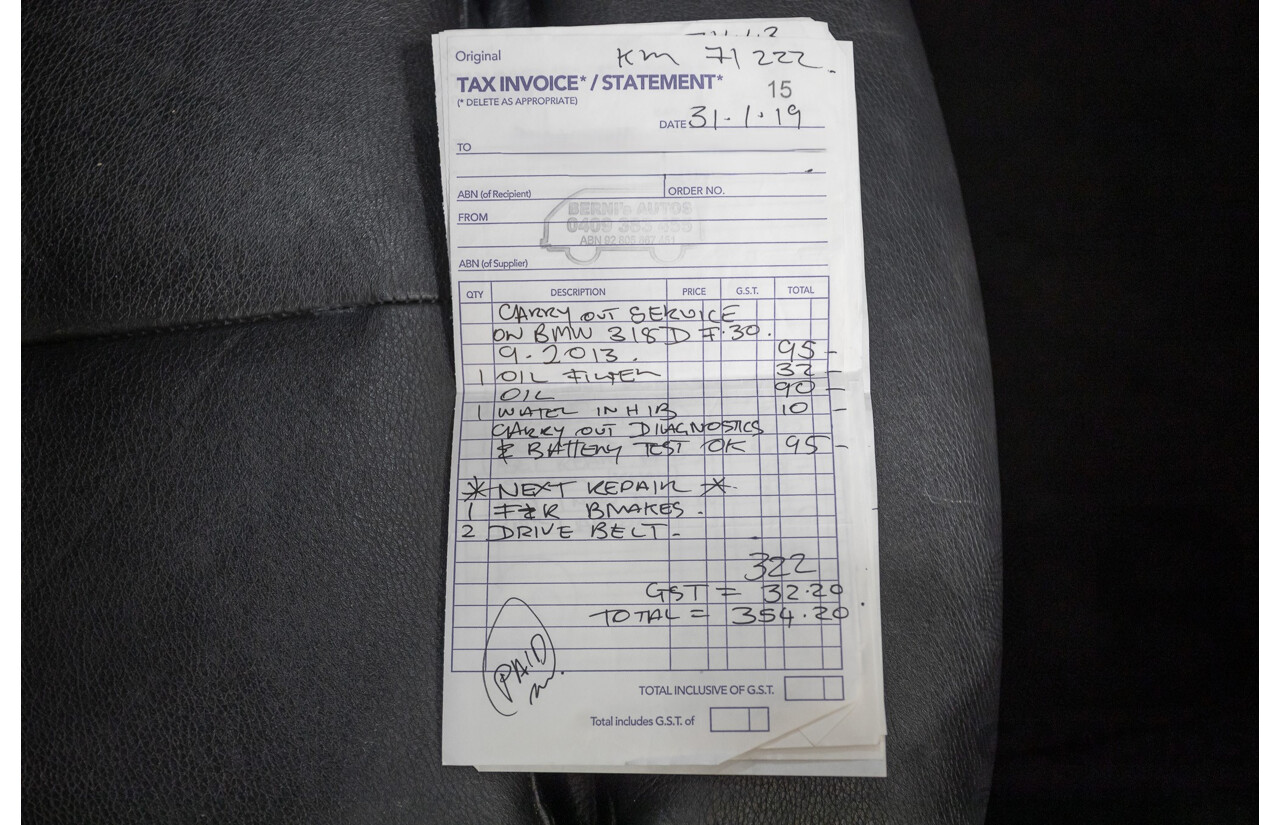 Original
KM 71 222.
TAX INVOICE* / STATEMENT*
15
(* DELETE AS APPROPRIATE)
DATE 31.1.19
TO
ABN (of Recipient) ORDER NO.
BERNI's AUTOS
FROM
0409
ABN 92
ABN (of Supplier)
QTY DESCRIPTION PRICE G.S.T. TOTAL
CARRY OUT SERVICE
ON BMW 318D F.30.
9.2013. 95 -
1 OIL FILTER 32 -
OIL 90 -
1 WATER INHIB 10 -
CARRY OUT DIAGNOSTICS
& BATTERY TEST OK 95 -
* NEXT REPAIR *
1 F&R BRAKES.
2 DRIVE BELT.
322
GST = 32.20
TOTAL = 354.20
PAID
TOTAL INCLUSIVE OF G.S.T.
Total includes G.S.T. of